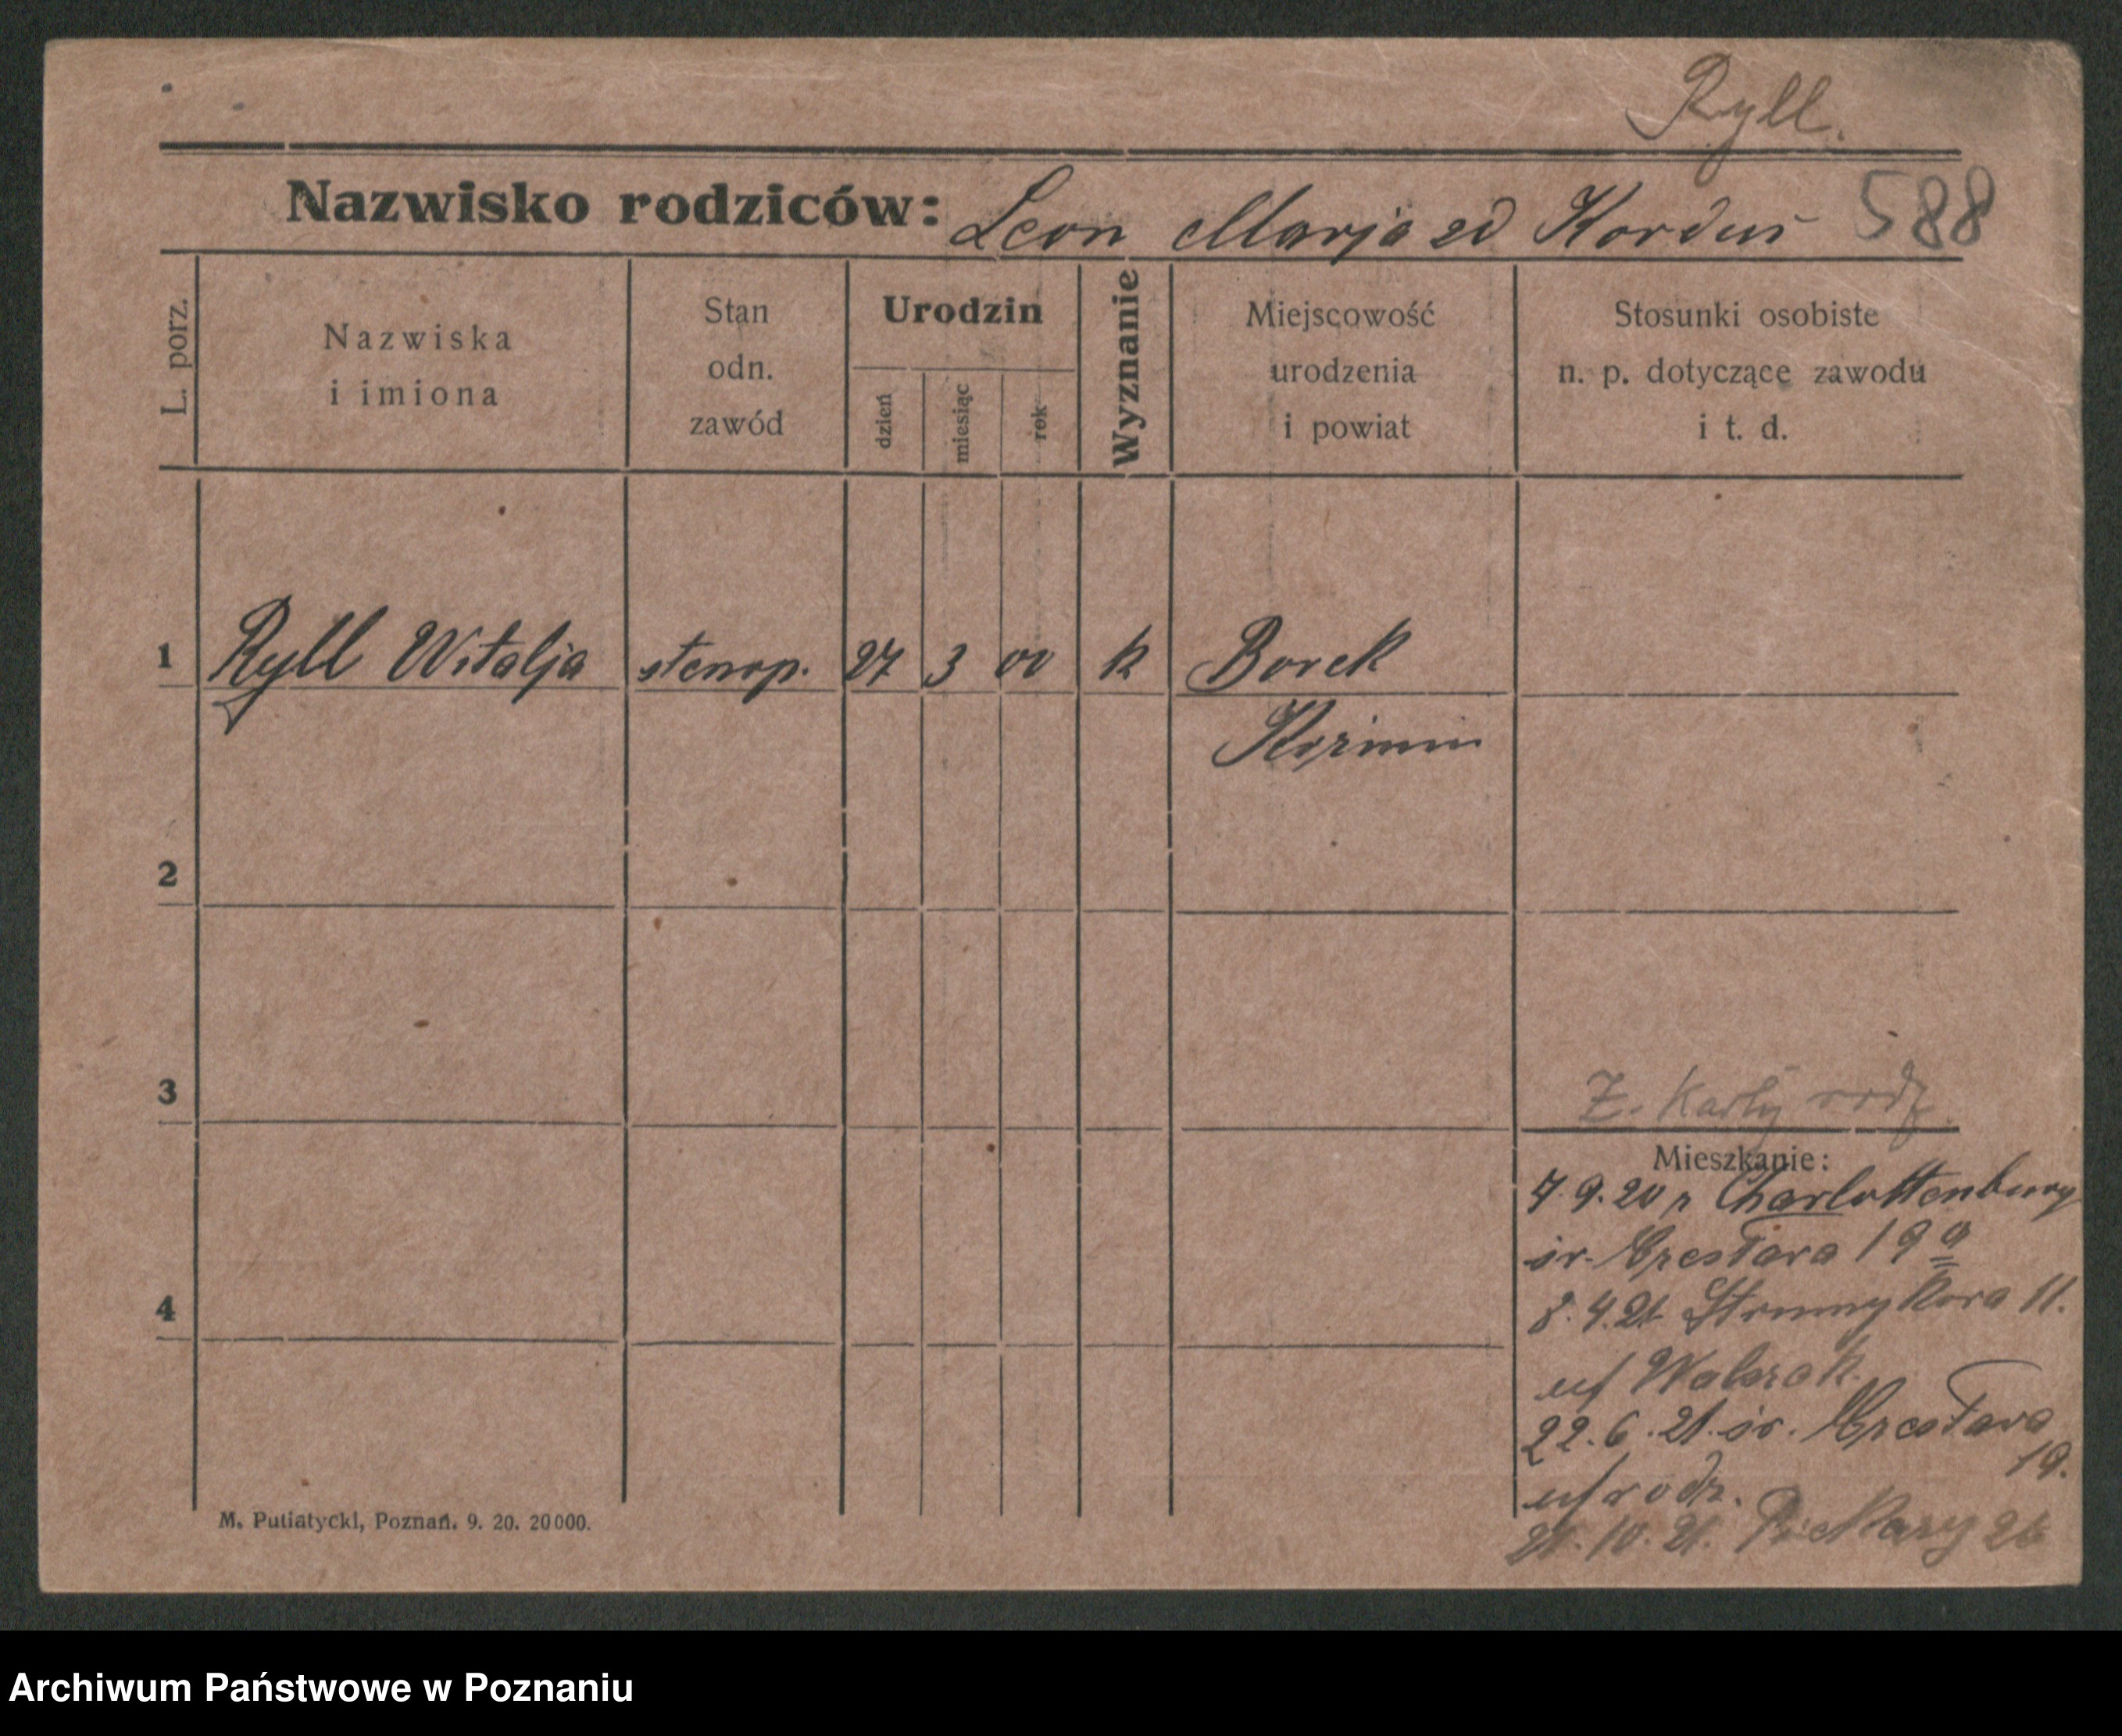 Ryll.
Nazwisko rodziców: Leon Marja zd Korduś 588
L. porz.
Nazwiska
i imiona
Stan
odn.
zawód
Urodzin
dzień
miesiąc
rok
Wyznanie
Miejscowość
urodzenia
i powiat
Stosunki osobiste
n. p. dotyczące zawodu
i t. d.
1 Ryll Witalja stenop. 27 3 00 k Borek
Koźmin
2
3
Z. Karty rodz.
Mieszkanie:
7.9.20 z Charlottenburg
św. Czesława 19a
8.4.21 Strumykowa 11.
u/ Walczak.
22.6.21. św. Czesława
19.
u/ rodz.
21.10.21. Piekary 26
4
M. Putiatycki, Poznań. 9. 20. 20000.
Archiwum Państwowe w Poznaniu